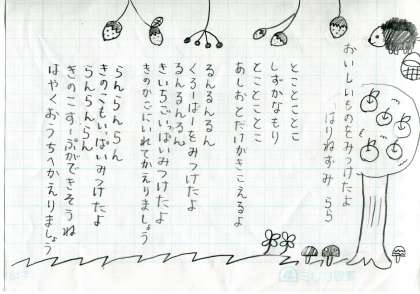 おいしいものをみつけたよ
はりねずみ らら
とことことこ
しずかなもり
とことことこ
あしおとだけがきこえるよ
るんるんるん
くろーばーをみつけたよ
るんるんるん
きいちごいっぱいみつけたよ
きのかごにいれてかえりましょう
らんらんらん
きのこもいっぱいみつけたよ
らんらんらん
きのこすーぷができそうね
はやくおうちへかえりましょう